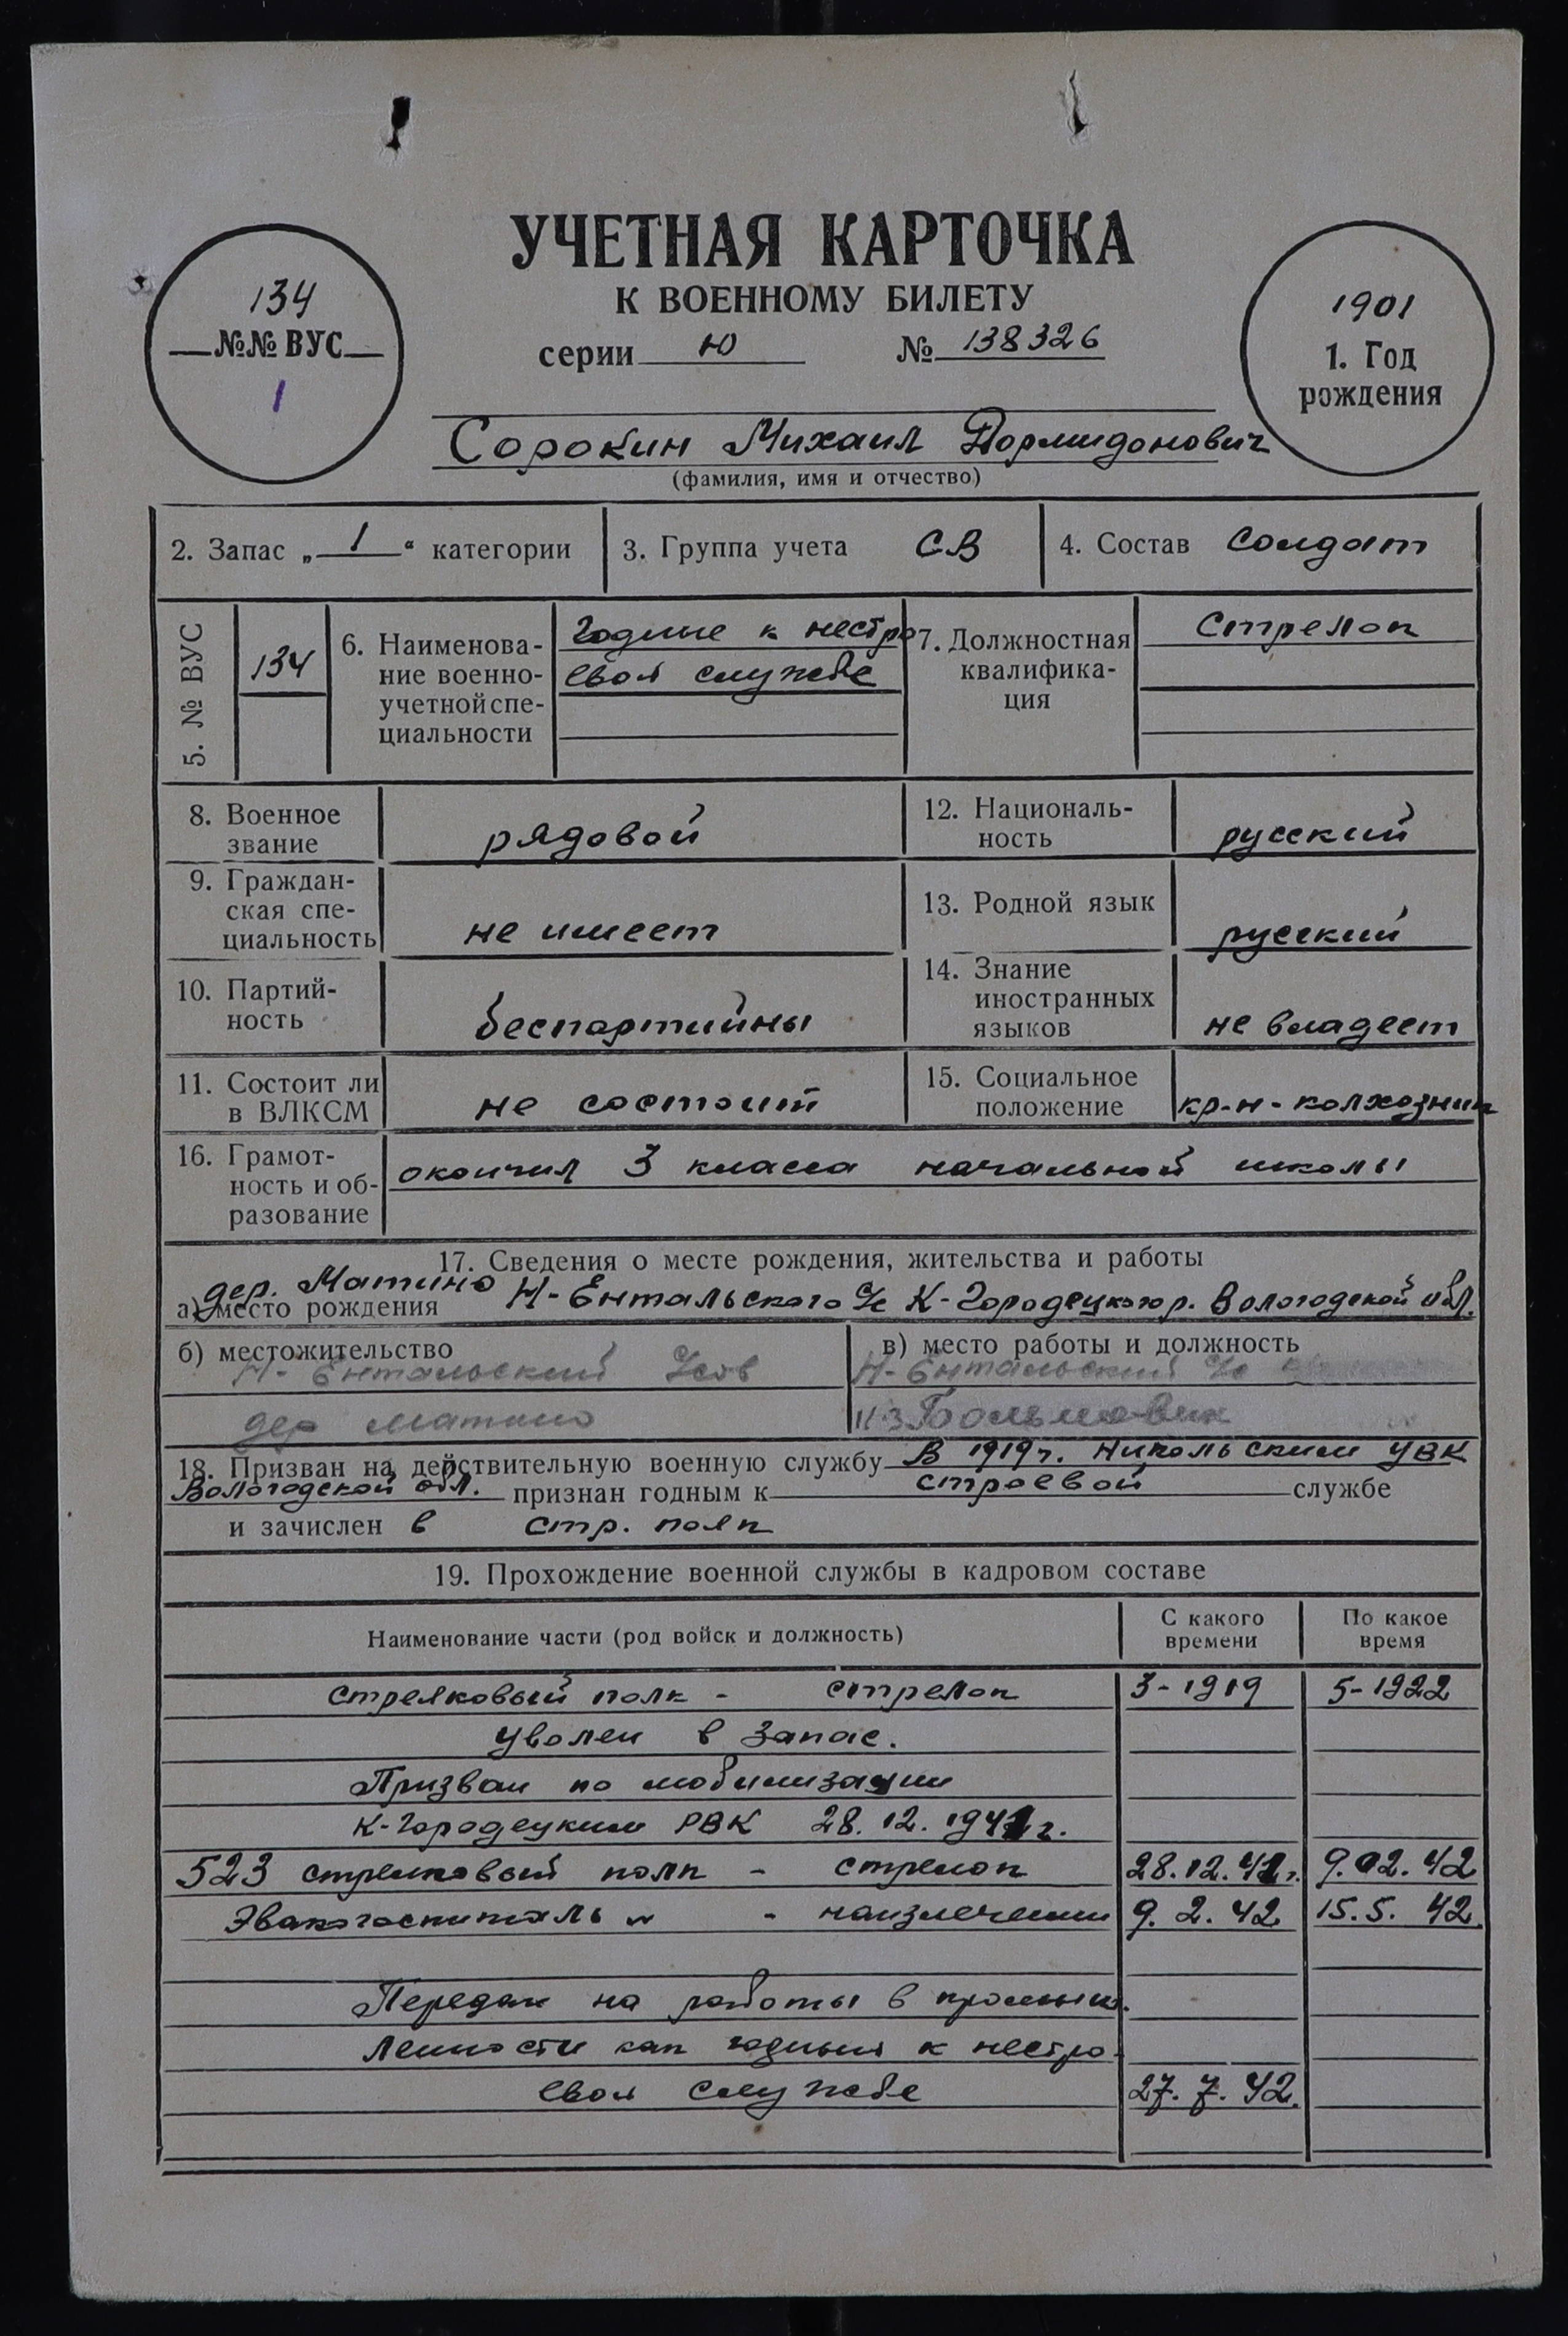 УЧЕТНАЯ КАРТОЧКА
К ВОЕННОМУ БИЛЕТУ
серии Ю № 138326
134
№№ ВУС
1
1901
1. Год
рождения
Сорокин Михаил Дормидонович
(фамилия, имя и отчество)
2. Запас „1“ категории
3. Группа учета СВ
4. Состав солдат
5. № ВУС
134
6. Наименова-
ние военно-
учетной спе-
циальности
Годные к нестро
евой службе
7. Должностная
квалифика-
ция
Стрелок
8. Военное
звание
рядовой
9. Граждан-
ская спе-
циальность
не имеет
10. Партий-
ность
беспартийны
11. Состоит ли
в ВЛКСМ
не состоит
12. Националь-
ность
русский
13. Родной язык
русский
14. Знание
иностранных
языков
не владеет
15. Социальное
положение
кр-н-колхозник
16. Грамот-
ность и об-
разование
окончил 3 класса начальной школы
17. Сведения о месте рождения, жительства и работы
дер. Матино
а) место рождения Н-Ентальского с/с К-Городецкого р. Вологодской обл.
б) местожительство
Н-Ентальский с/сов
дер Матино
в) место работы и должность
Н-Ентальский с/с
к-з Большевик
18. Призван на действительную военную службу В 1919г. Никольским УВК
Вологодской обл. признан годным к строевой службе
и зачислен в стр. полк
19. Прохождение военной службы в кадровом составе
Наименование части (род войск и должность)
С какого
времени
По какое
время
Стрелковый полк - стрелок 3-1919 5-1922
Уволен в запас.
Призван по мобилизации
К-Городецким РВК 28.12.1941г.
523 стрелковый полк - стрелок 28.12.41г. 9.02.42
Эвакогоспиталь - наизлечении 9.2.42 15.5.42.
Передан на работы в промыш-
ленности как годный к нестро-
евой службе 27.7.42.